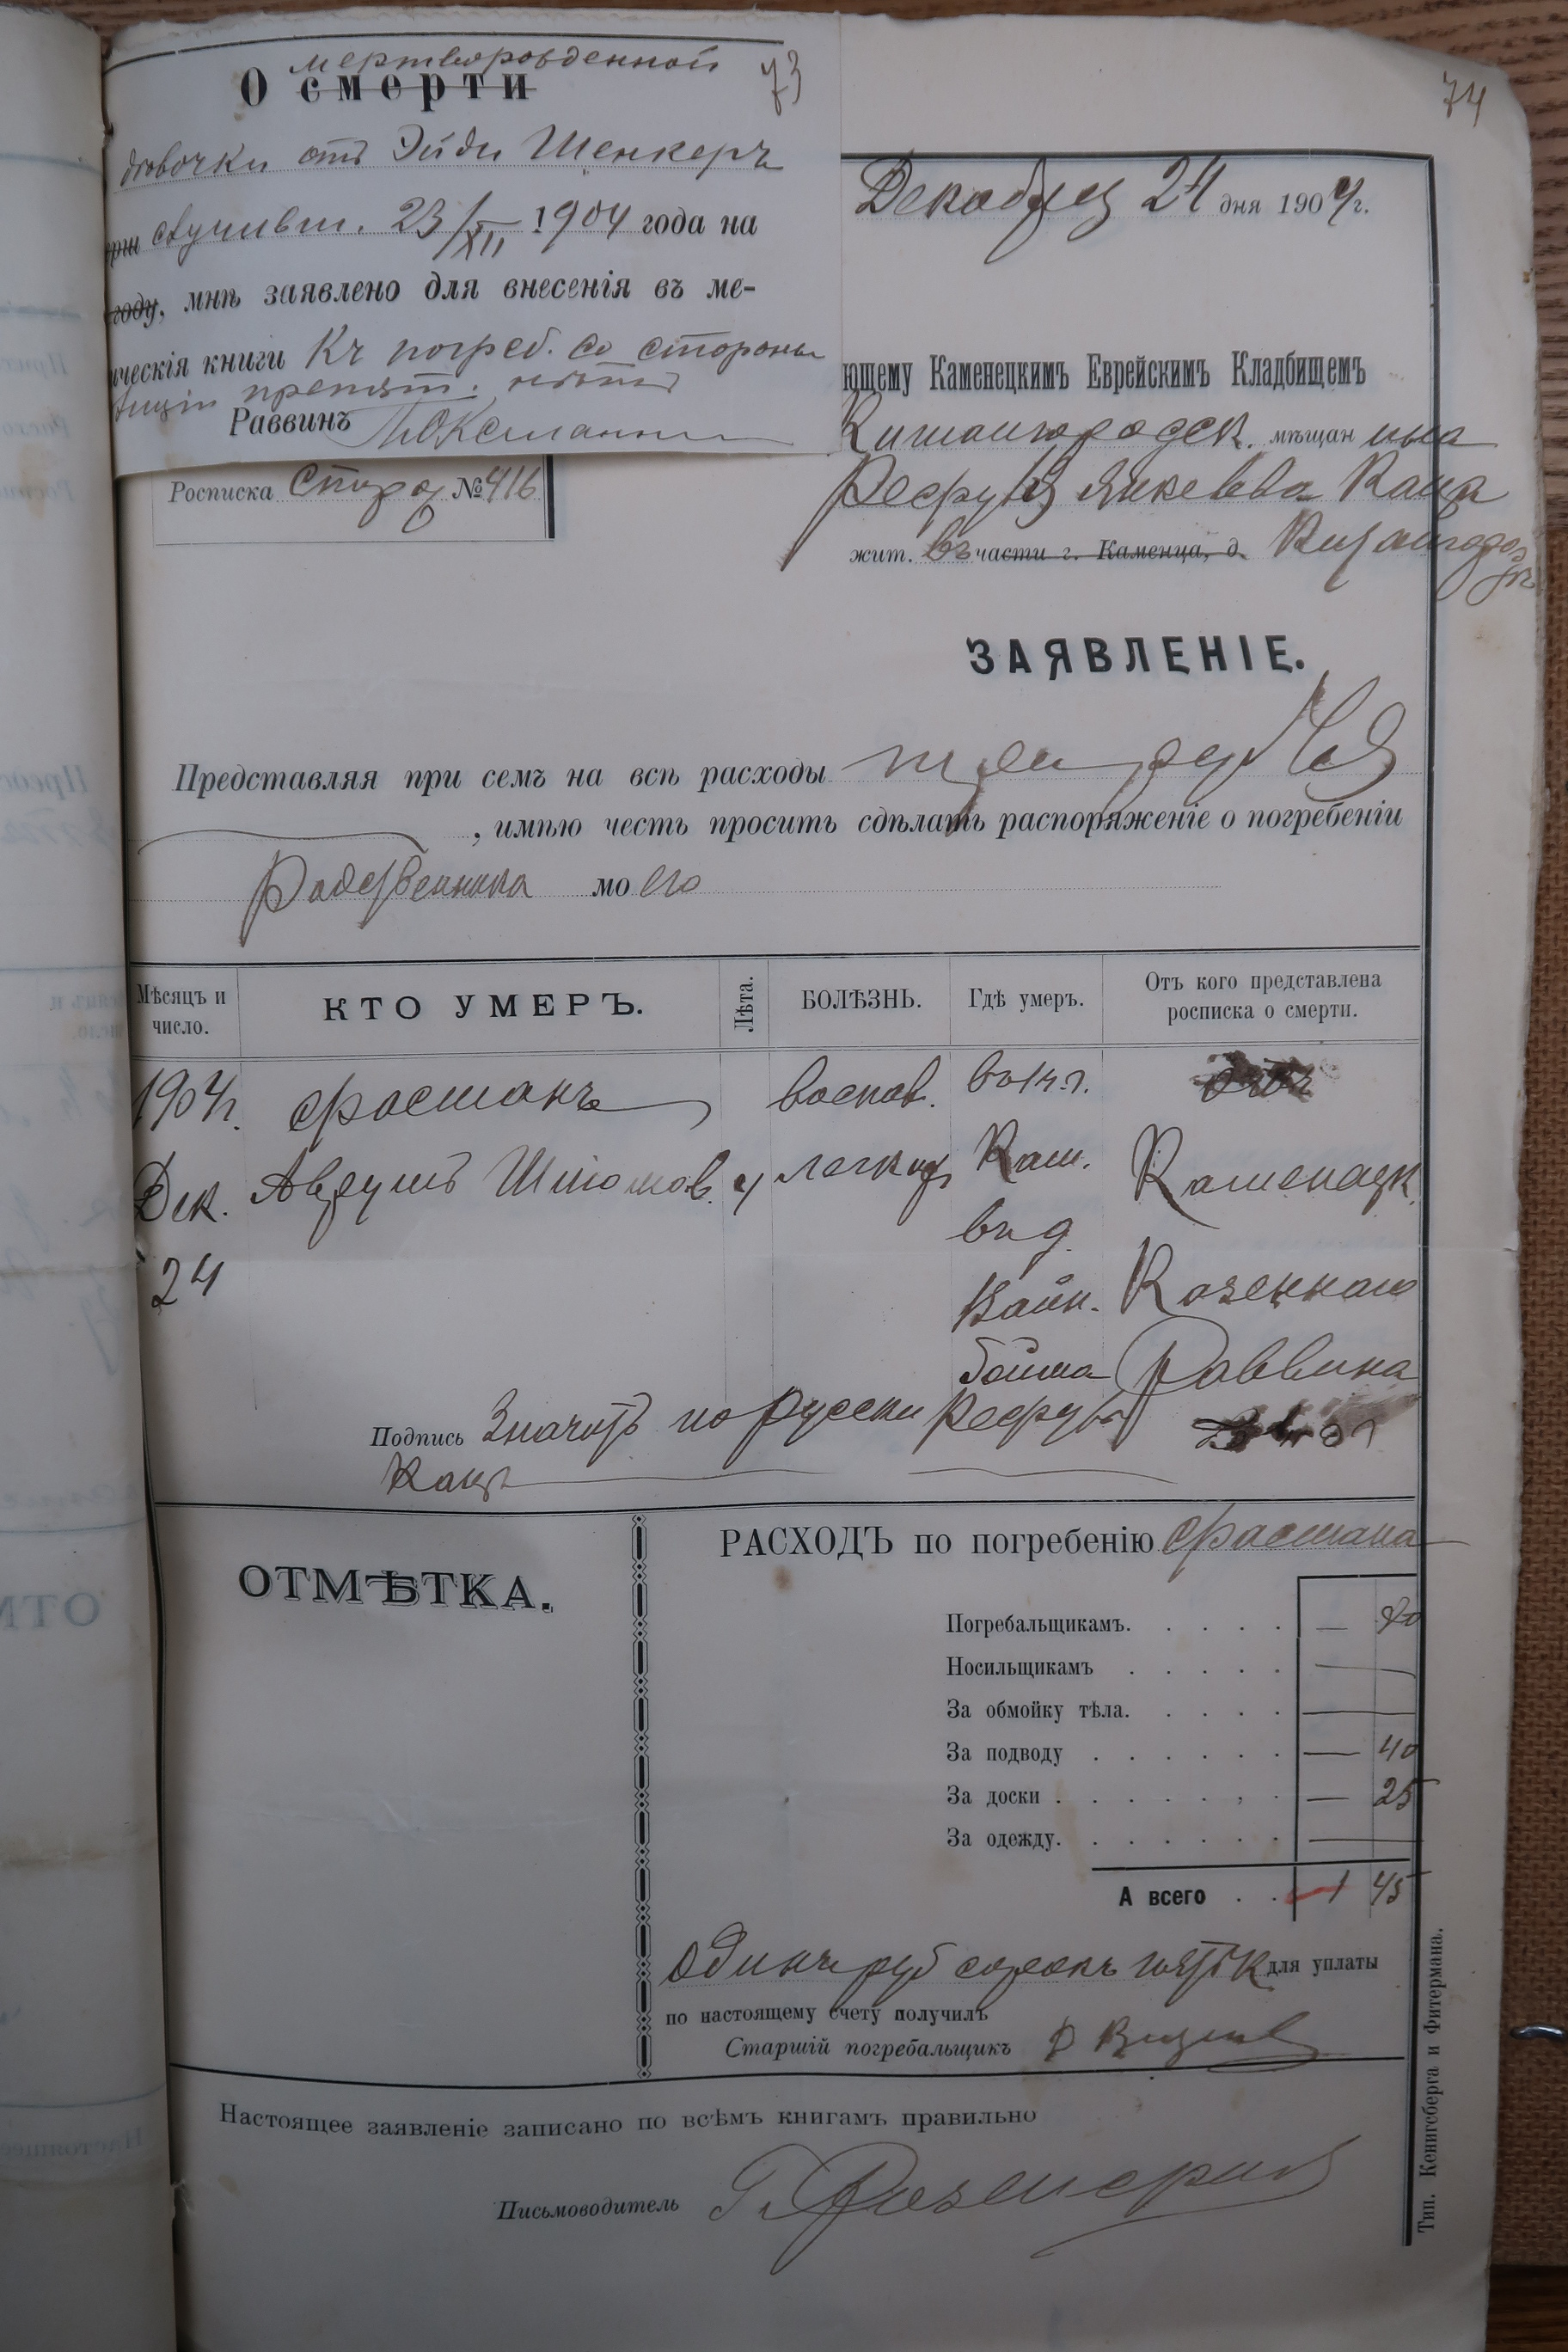 мертворожденной
О смерти
73
девочки отъ Эйди Шенкеръ
случивш. 23/XII 1904 года на
году, мнѣ заявлено для внесенія въ ме-
ическія книги Къ погреб. со стороны
препят. нѣтъ
Раввинъ
74
Декабря 24 дня 1904 г.
ющему Каменецкимъ Еврейскимъ Кладбищемъ
мѣщанина
Янкелева Каца
жит. въ части г. Каменца, д.
Росписка №416
ЗАЯВЛЕНІЕ.
Представляя при семъ на всѣ расходы три рубля
, имѣю честь просить сдѣлать распоряженіе о погребеніи
Родственника моего
Мѣсяцъ и число.
КТО УМЕРЪ.
Лѣта.
БОЛѢЗНЬ.
Гдѣ умеръ.
Отъ кого представлена росписка о смерти.
1904г. Фастманъ воспал. въ г.
Дек. Аврумъ 4 легких Кам. Каменецк.
24 въ д.
Вайн- Казеннаго
бойма Раввина
Подпись Значитъ по русски
Кацъ
ОТМѢТКА.
РАСХОДЪ по погребенію Фастмана
Погребальщикамъ. — 80
Носильщикамъ —
За обмойку тѣла. —
За подводу — 40
За доски — 25
За одежду. —
А всего 1 45
Одинъ руб сорокъ пять к для уплаты
по настоящему счету получилъ
Старшій погребальщикъ
Настоящее заявленіе записано по всѣмъ книгамъ правильно
Письмоводитель
Тип. Кенигсберга и Фитермана.